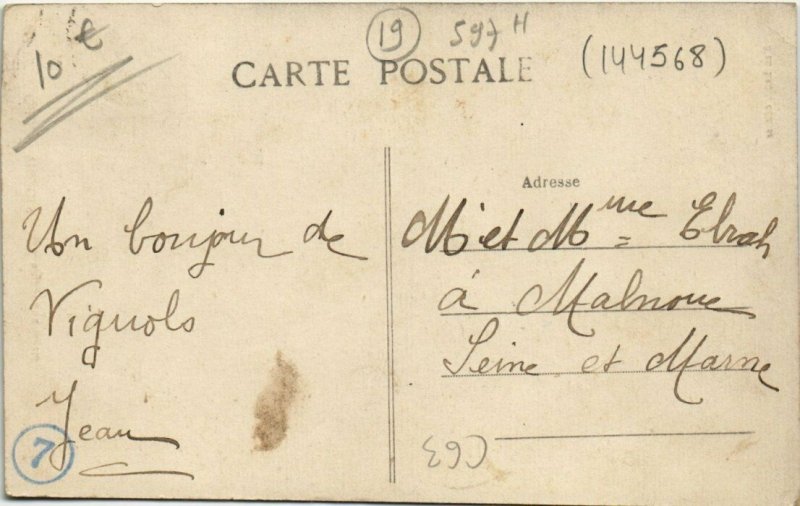 10 €
19
597 H
(144568)
CARTE POSTALE
Adresse
Un bonjour de
Vignols
Jean
7
Mr et Mme Ebrah
à Malnoue
Seine et Marne